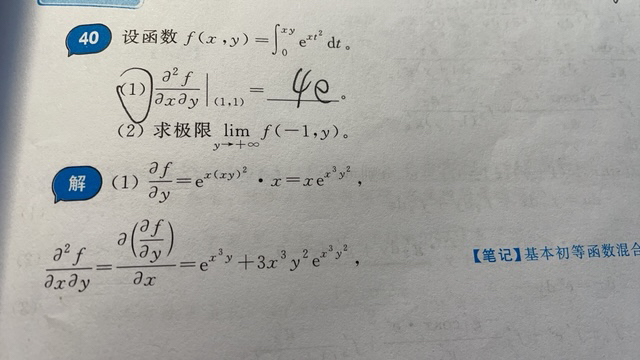 40 设函数 f(x,y)=∫₀^{xy} e^{xt²} dt。
(1) ∂²f/∂x∂y |₍₁,₁₎ = 4e 。
(2) 求极限 lim_{y→+∞} f(-1,y)。
解 (1) ∂f/∂y = e^{x(xy)²} · x = xe^{x³y²},
∂²f/∂x∂y = ∂(∂f/∂y)/∂x = e^{x³y} + 3x³y²e^{x³y²},
【笔记】基本初等函数混合